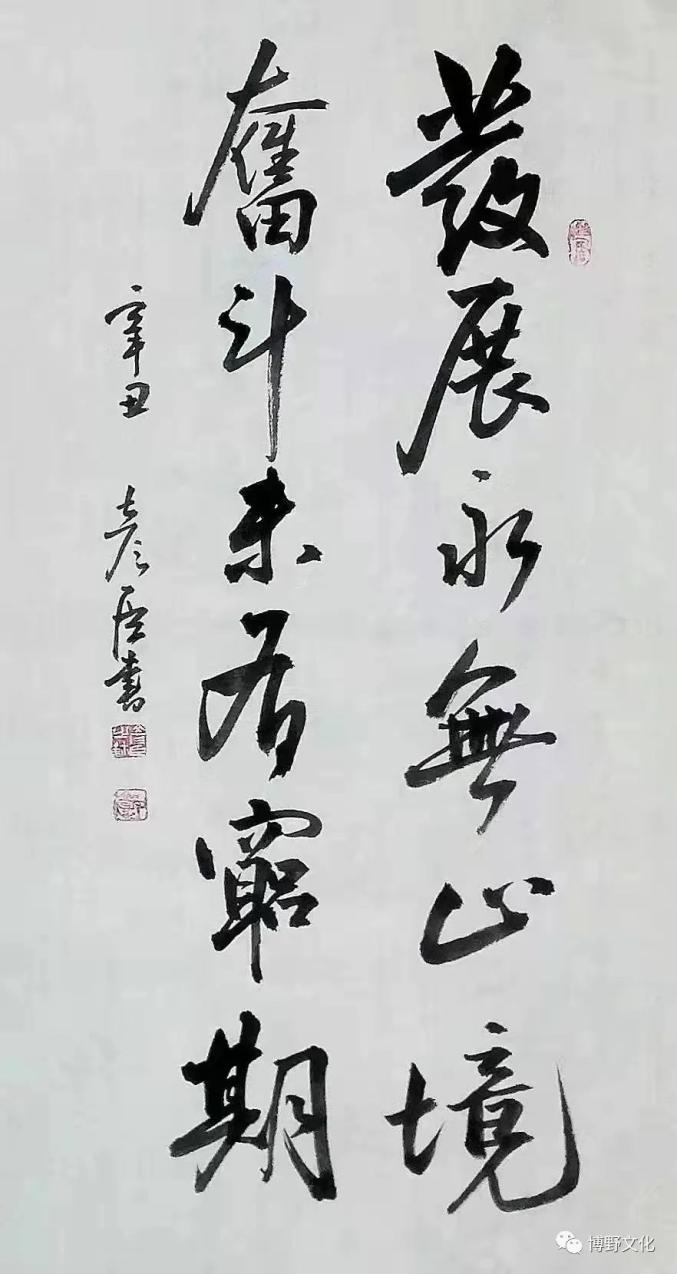 發展永無止境
奮斗未有窮期
辛丑 書
博野文化